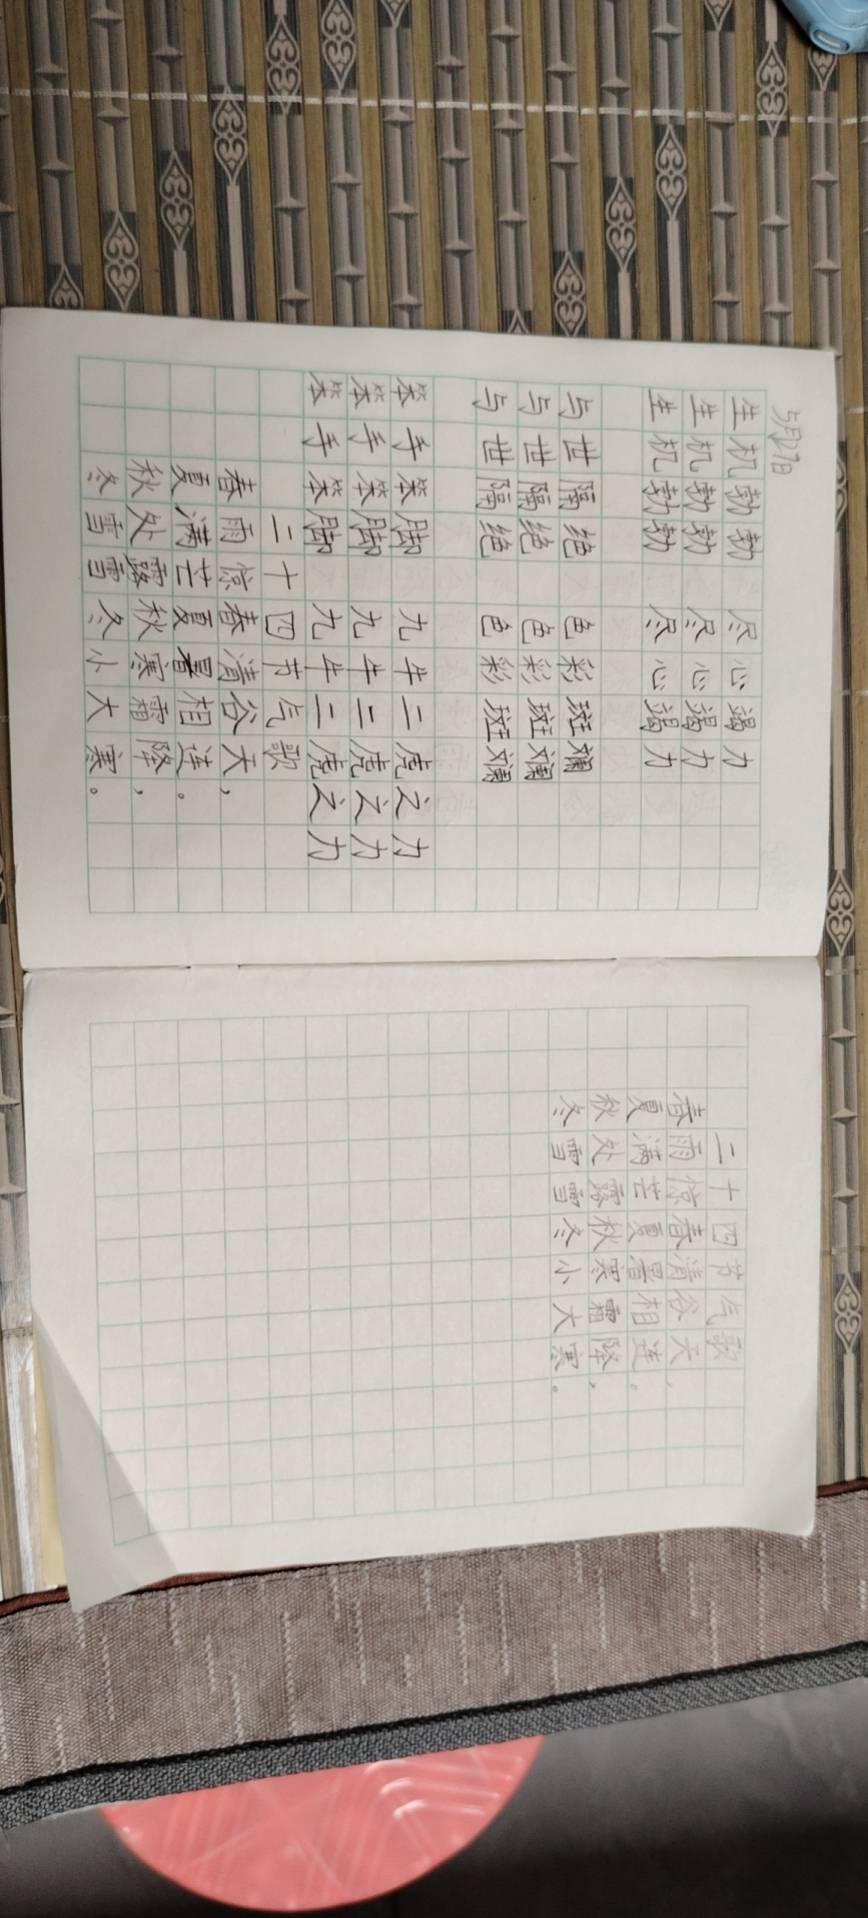 5月27日
生机勃勃 尽心竭力
生机勃勃 尽心竭力
生机勃勃 尽心竭力
与世隔绝 色彩斑斓
与世隔绝 色彩斑斓
与世隔绝 色彩斑斓
笨手笨脚 九牛二虎之力
笨手笨脚 九牛二虎之力
笨手笨脚 九牛二虎之力
二十四节气歌
春雨惊春清谷天,
夏满芒夏暑相连。
秋处露秋寒霜降,
冬雪雪冬小大寒。
二十四节气歌
春雨惊春清谷天,
夏满芒夏暑相连。
秋处露秋寒霜降,
冬雪雪冬小大寒。